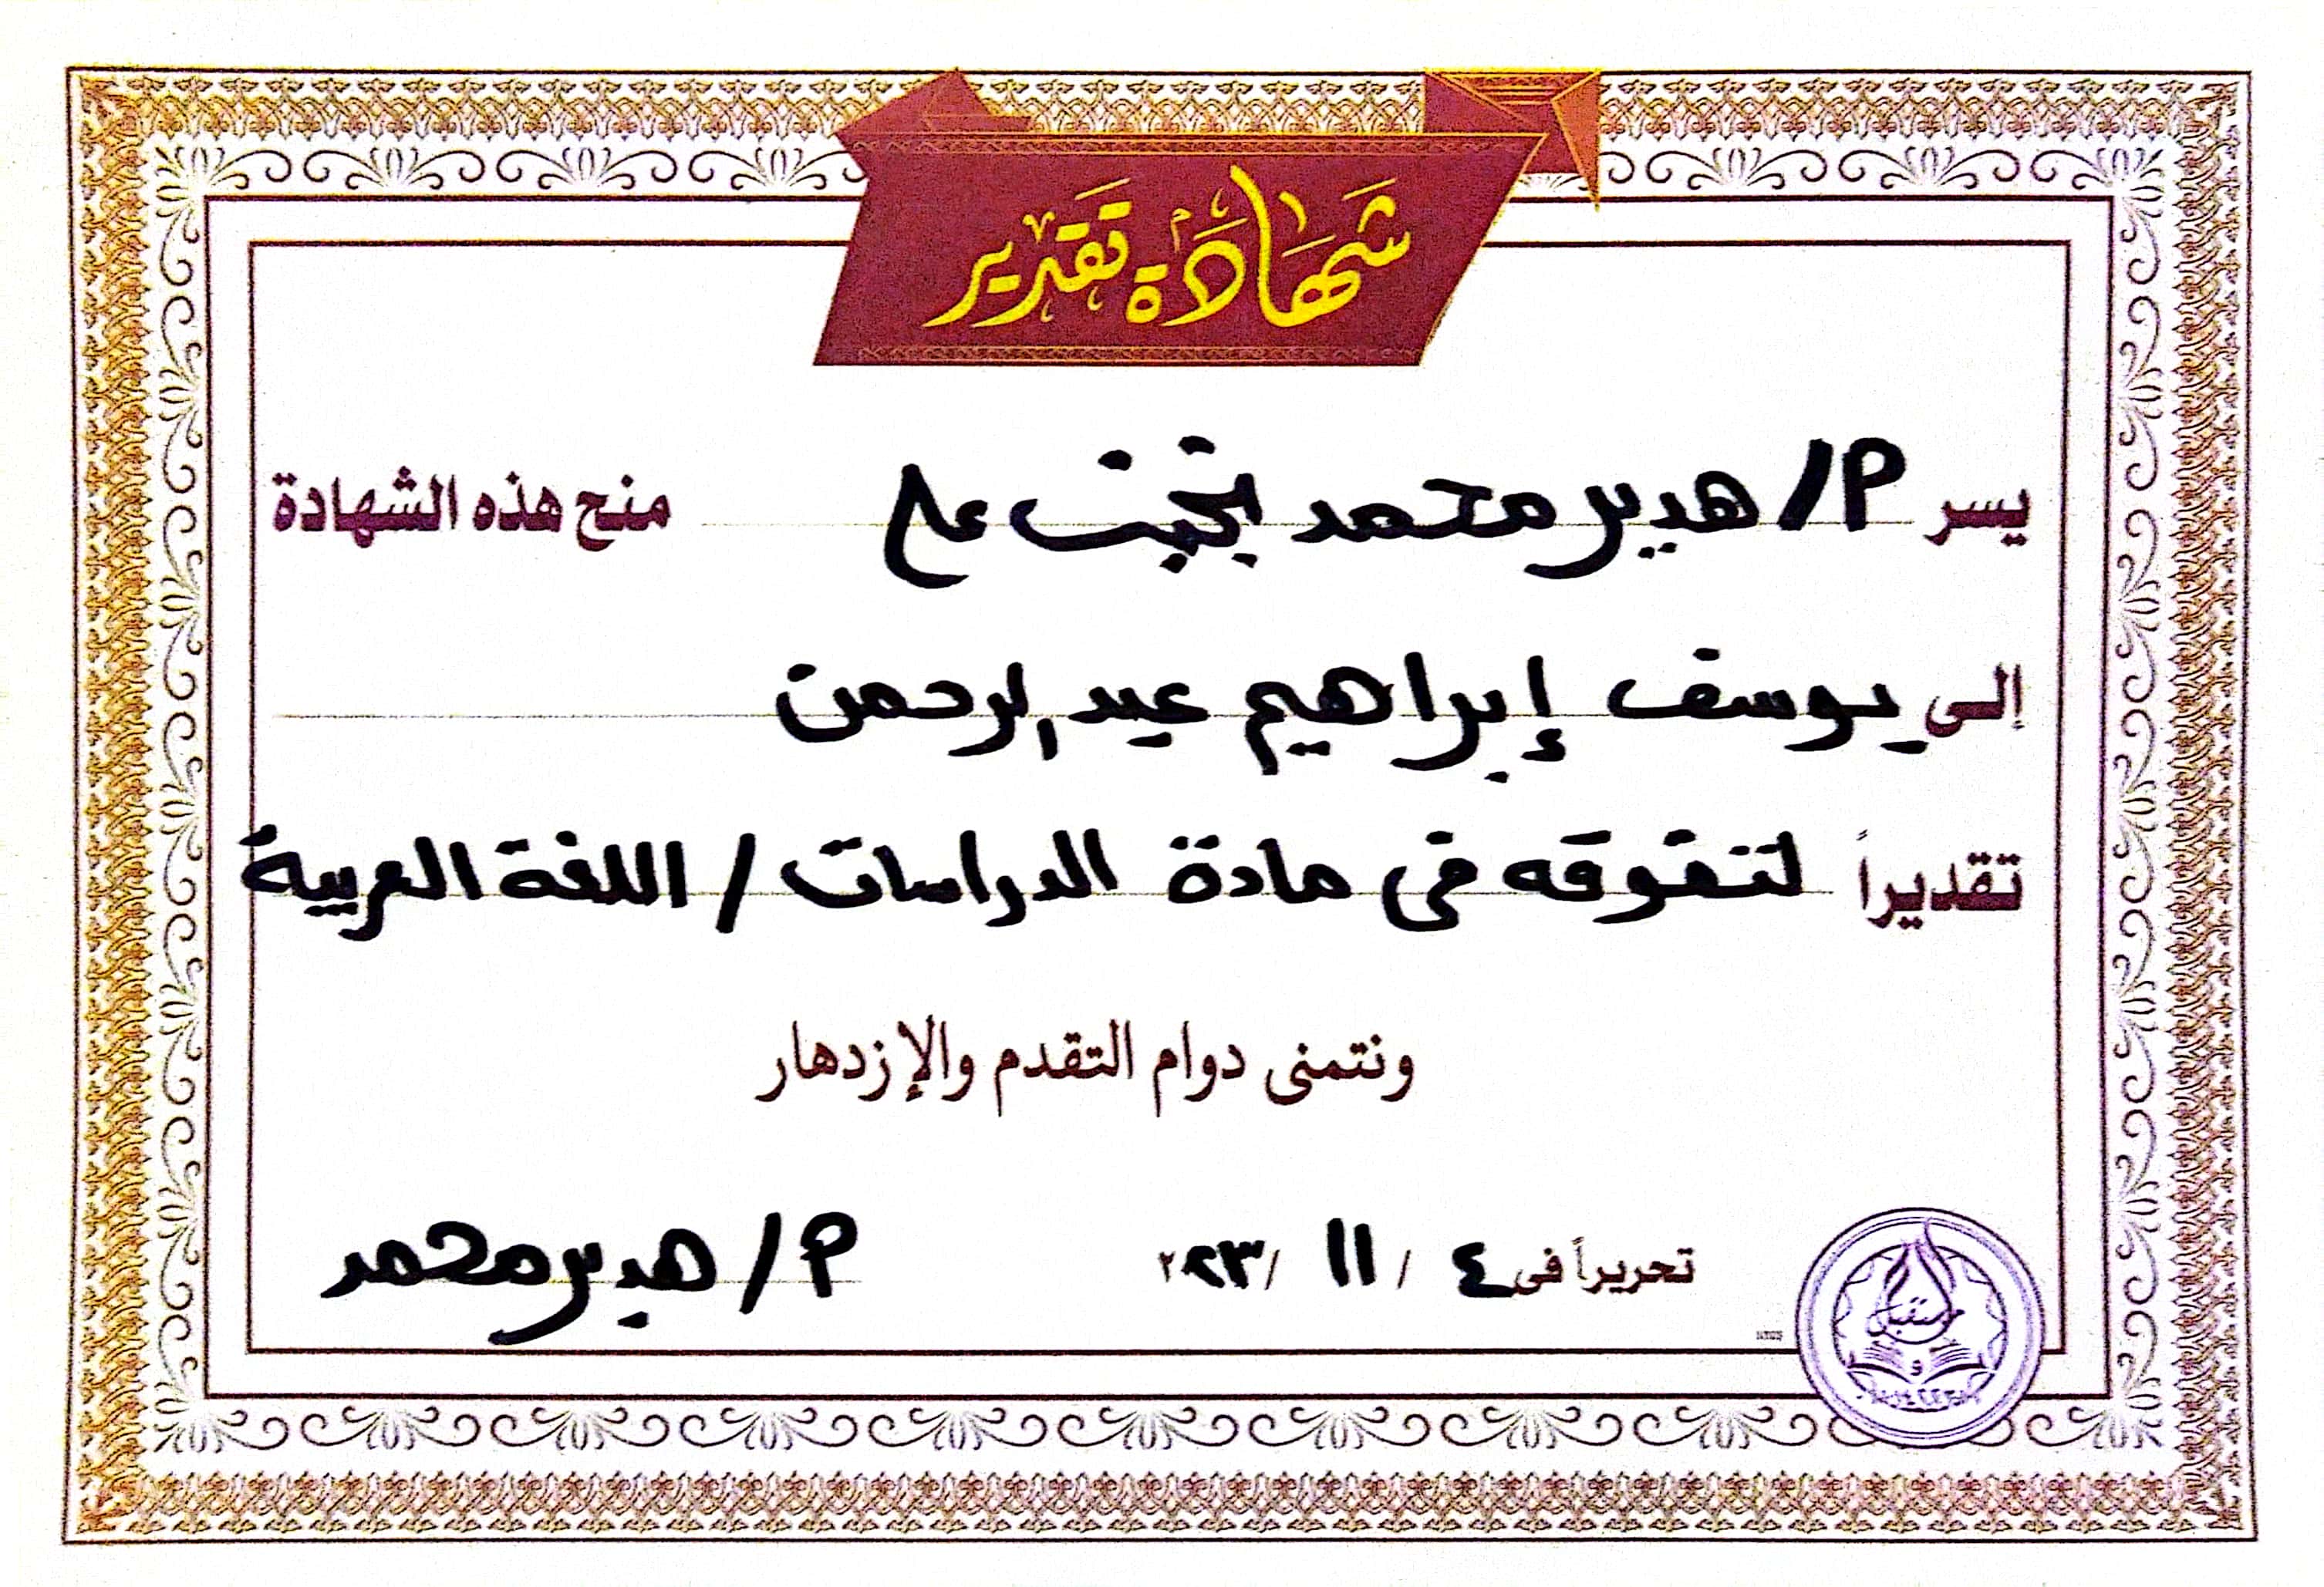 شهادة تقدير
يسر م/ هدير محمد بخيت علي منح هذه الشهادة
إلى يوسف إبراهيم عبد الرحمن
تقديراً لتفوقه فى مادة الدراسات / اللغة العربية
ونتمنى دوام التقدم والإزدهار
تحريراً فى ٤ / ١١ /٢٠٢٣
م/ هدير محمد
مستقبل